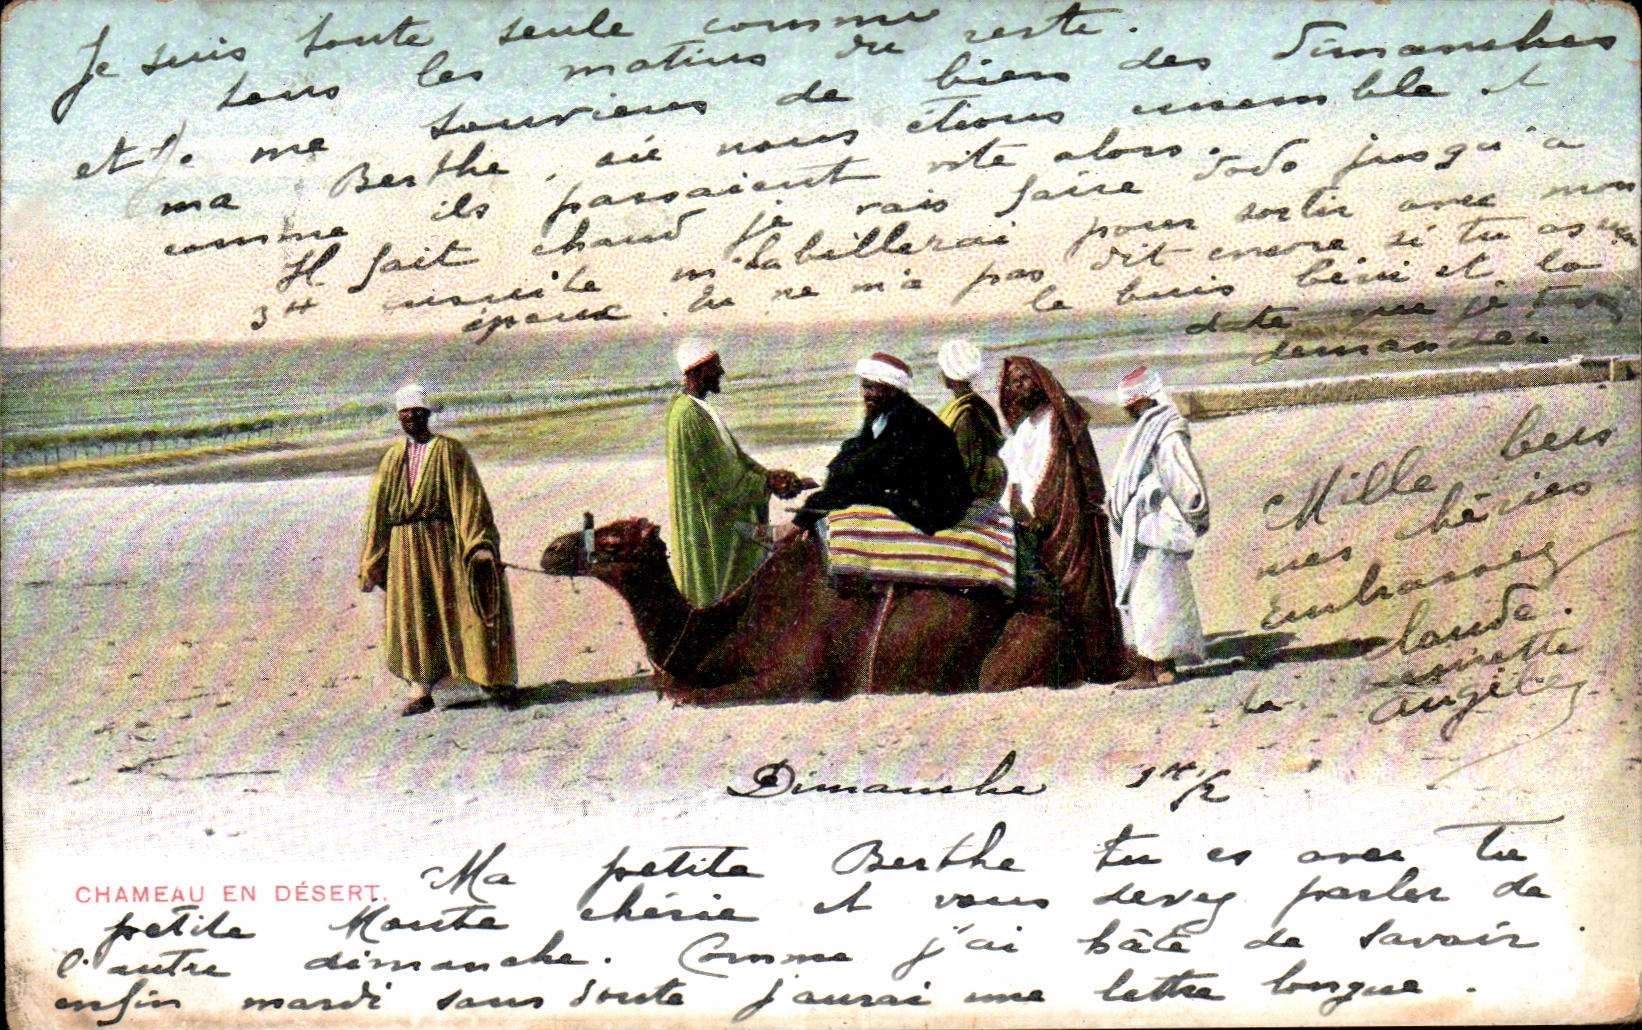 Je suis toute seule comme
tous les matins du reste.
et je me souviens de bien des dimanches
ma Berthe, où nous étions ensemble et
comme ils passaient vite alors.
Il fait chaud je vais faire dodo jusqu'à
3H ensuite m'habillerai pour sortir avec mon
époux. Tu ne m'a pas dit encore si tu as
le buis béni et la
date que je
demandée
Mille bers
mes chéries
Embrassez
Claude.
la
Dimanche 1H 1/2
CHAMEAU EN DÉSERT.
Ma petite Berthe tu es avec Tu
petite chérie et vous devez parler de
l'autre dimanche. Comme j'ai hâte de savoir
enfin mardi sans doute j'aurai une lettre longue.